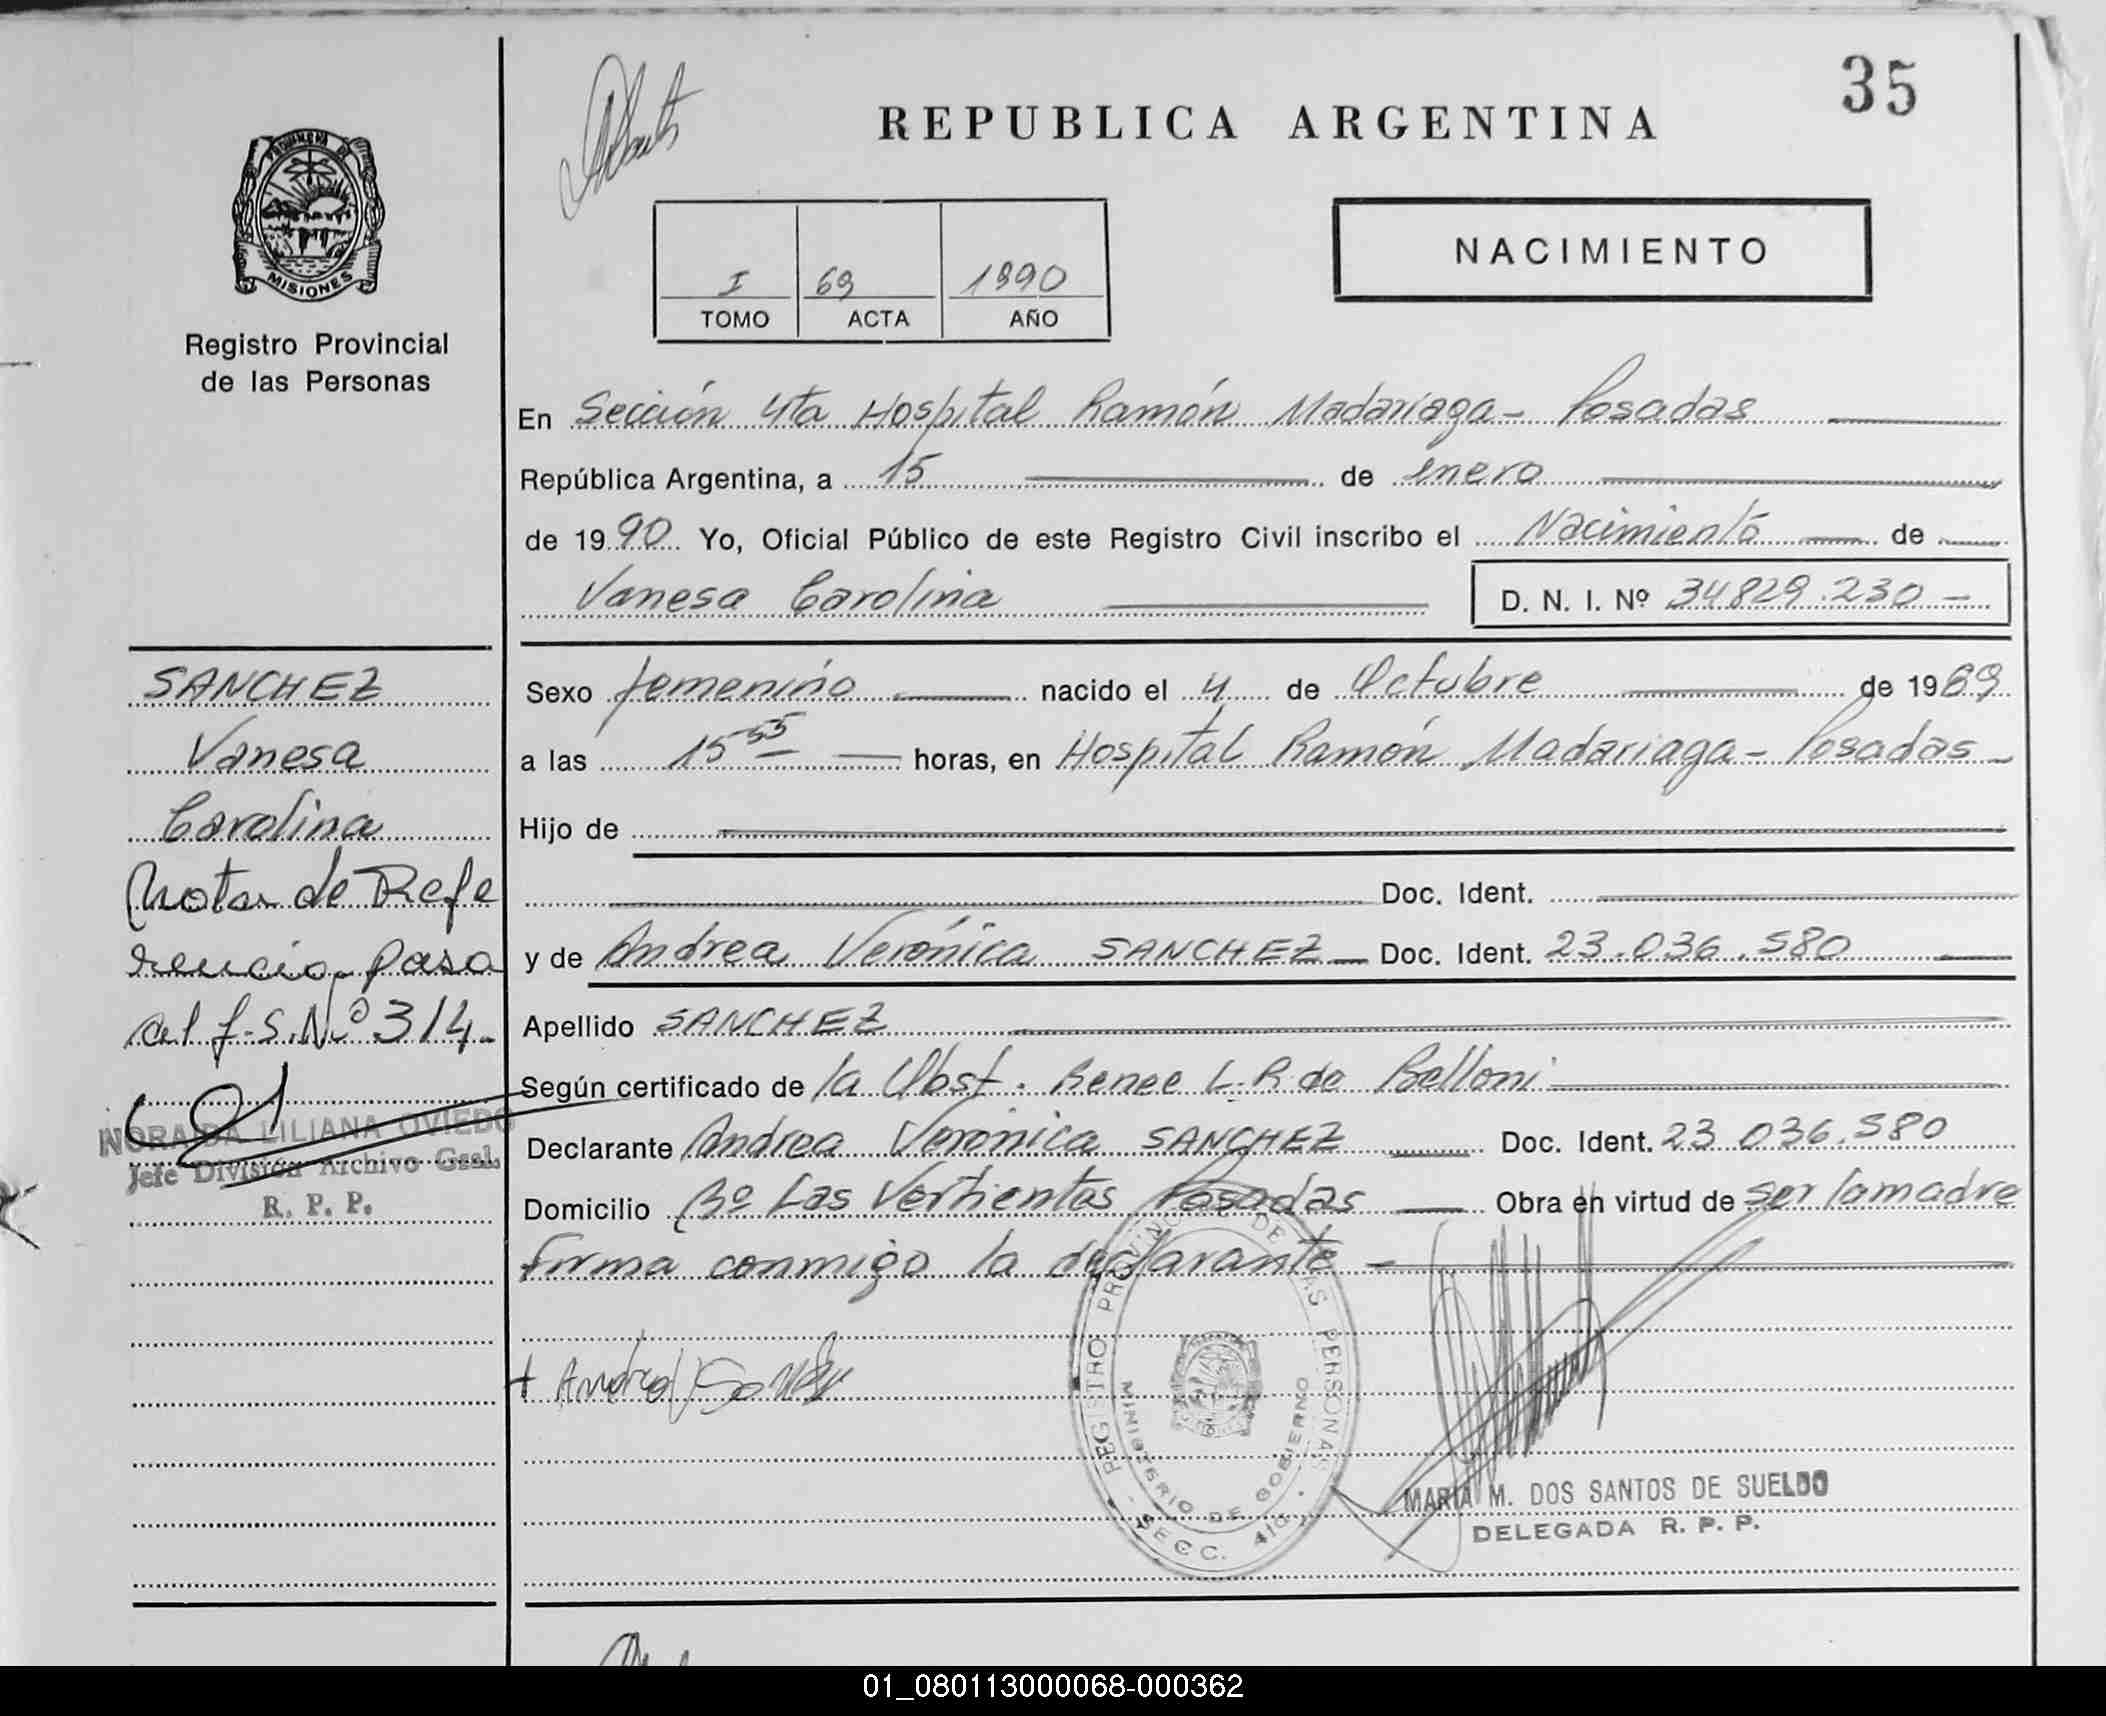 35
REPUBLICA ARGENTINA
PROVINCIA DE
MISIONES
NACIMIENTO
I 69 1990
TOMO ACTA AÑO
Registro Provincial
de las Personas
En Sección 4ta Hospital Ramón Madariaga - Posadas
República Argentina, a 15 de enero
de 1990 Yo, Oficial Público de este Registro Civil inscribo el Nacimiento de
Vanesa Carolina D. N. I. Nº 34829.230 -
SANCHEZ
Vanesa
Carolina
Nota de Refe
rencia pasa
al f.S.Nº 314.-
NORAIDA LILIANA OVIEDO
Jefe División Archivo Gral.
R. P. P.
Sexo femenino nacido el 4 de Octubre de 1989
a las 15 55 horas, en Hospital Ramón Madariaga - Posadas
Hijo de
Doc. Ident.
y de Andrea Verónica SANCHEZ Doc. Ident. 23.036.580
Apellido SANCHEZ
Según certificado de la Obst. Renee L. R. de Belloni
Declarante Andrea Verónica SANCHEZ Doc. Ident. 23.036.580
Domicilio Bº Las Vertientes Posadas Obra en virtud de ser la madre
firma conmigo la declarante -
REGISTRO PROVINCIAL DE LAS PERSONAS
MINISTERIO DE GOBIERNO
SECC. 4ta.
MARIA M. DOS SANTOS DE SUELDO
DELEGADA R. P. P.
01_080113000068-000362